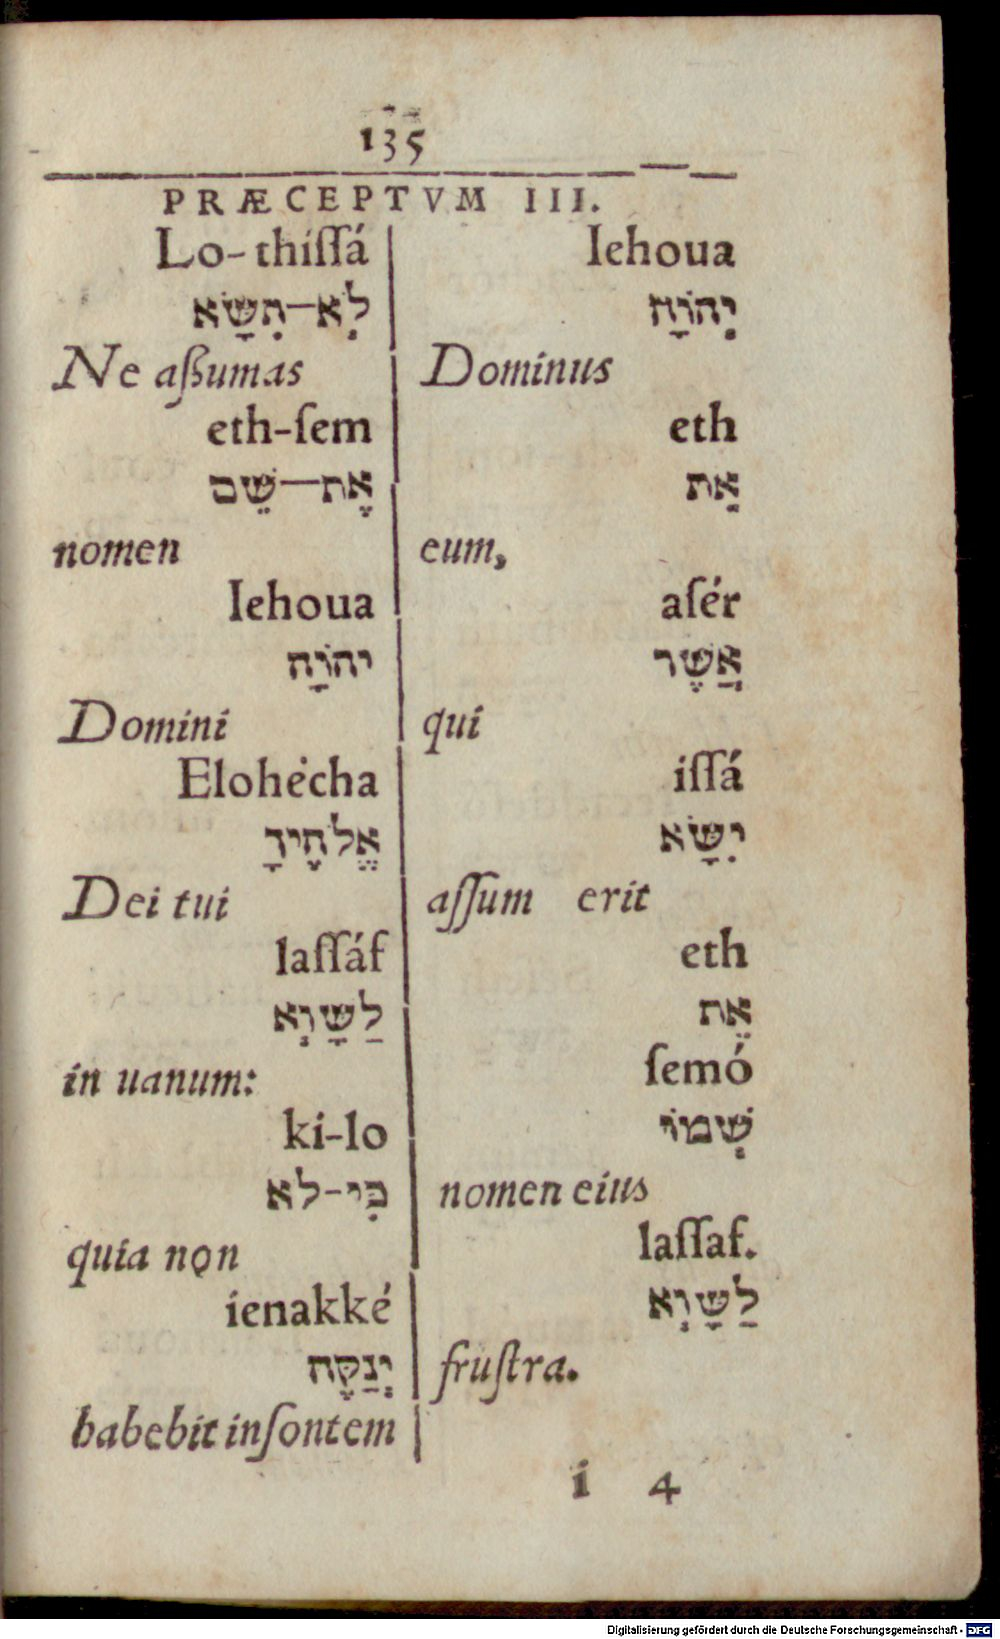 135
PRÆCEPTVM III.
Lo-thiſſá
לְא־תִשָּׂא
Ne aßumas
eth-ſem
אֶת־שֵׁם
nomen
Iehoua
יהוָֹה
Domini
Elohécha
אֱלֹהֶיךָ
Dei tui
laſſáf
לַשָּׁוְא
in uanum:
ki-lo
כִּי-לֹא
quia non
ienakké
יְנַקֶּה
habebit inſontem
Iehoua
יְהוָֹה
Dominus
eth
אֵת
eum,
aſér
אֲשֶׁר
qui
iſſá
יִשָּׂא
aſſum erit
eth
אֶת
ſemó
שְׁמוֹ
nomen eius
laſſaf.
לַשָּׁוְא
fruſtra.
i 4
Digitalisierung gefördert durch die Deutsche Forschungsgemeinschaft - DFG